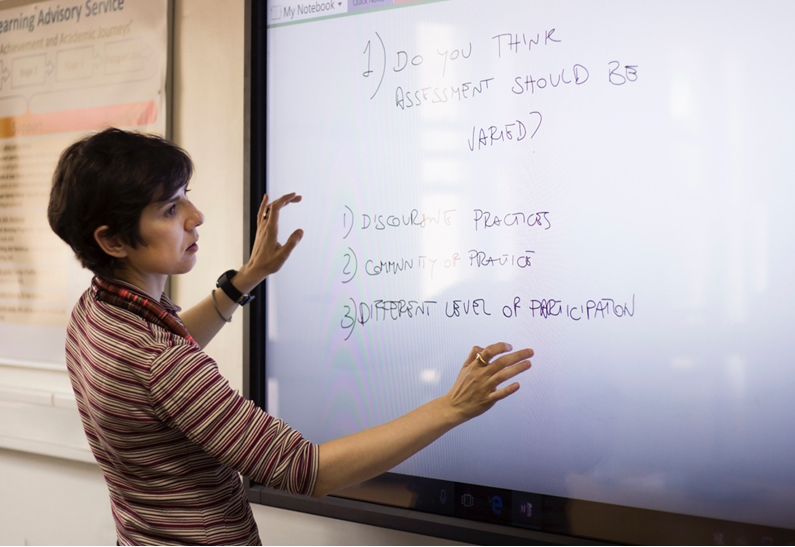 earning Advisory Service
Achievement and Academic Journeys
My Notebook
Quick Notes
1) DO YOU THINK
ASSESSMENT SHOULD BE
VARIED?
1) DISCOURSIVE PRACTICES
2) COMMUNITY OF PRACTICE
3) DIFFERENT LEVEL OF PARTICIPATION